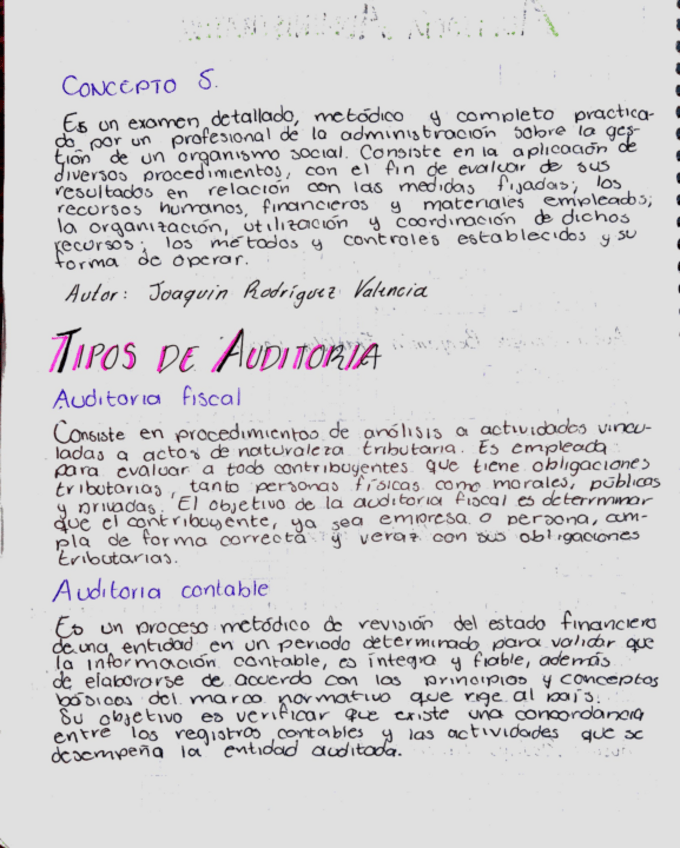 CONCEPTO 5.
Es un examen detallado, metódico y completo practica-
do por un profesional de la administración sobre la ges-
tión de un organismo social. Consiste en la aplicación de
diversos procedimientos, con el fin de evaluar de sus
resultados en relación con las medidas fijadas; los
recursos humanos, financieros y materiales empleados;
la organización, utilización y coordinación de dichos
recursos; los métodos y controles establecidos y su
forma de operar.
Autor: Joaquin Rodríguez Valencia
TIPOS DE AUDITORIA
Auditoria fiscal
Consiste en procedimientos de análisis a actividades vincu-
ladas a actos de naturaleza tributaria. Es empleada
para evaluar a todo contribuyentes que tiene obligaciones
tributarias, tanto personas físicas como morales, públicas
y privadas. El objetivo de la auditoria fiscal es determinar
que el contribuyente, ya sea empresa o persona, cum-
pla de forma correcta y veraz con sus obligaciones
tributarias.
Auditoria contable
Es un proceso metódico de revisión del estado financiero
de una entidad en un periodo determinado para validar que
la información contable, es íntegra y fiable, además
de elaborarse de acuerdo con los principios y conceptos
básicos del marco normativo que rige al país.
Su objetivo es verificar que existe una concordancia
entre los registros contables y las actividades que se
desempeña la entidad auditada.